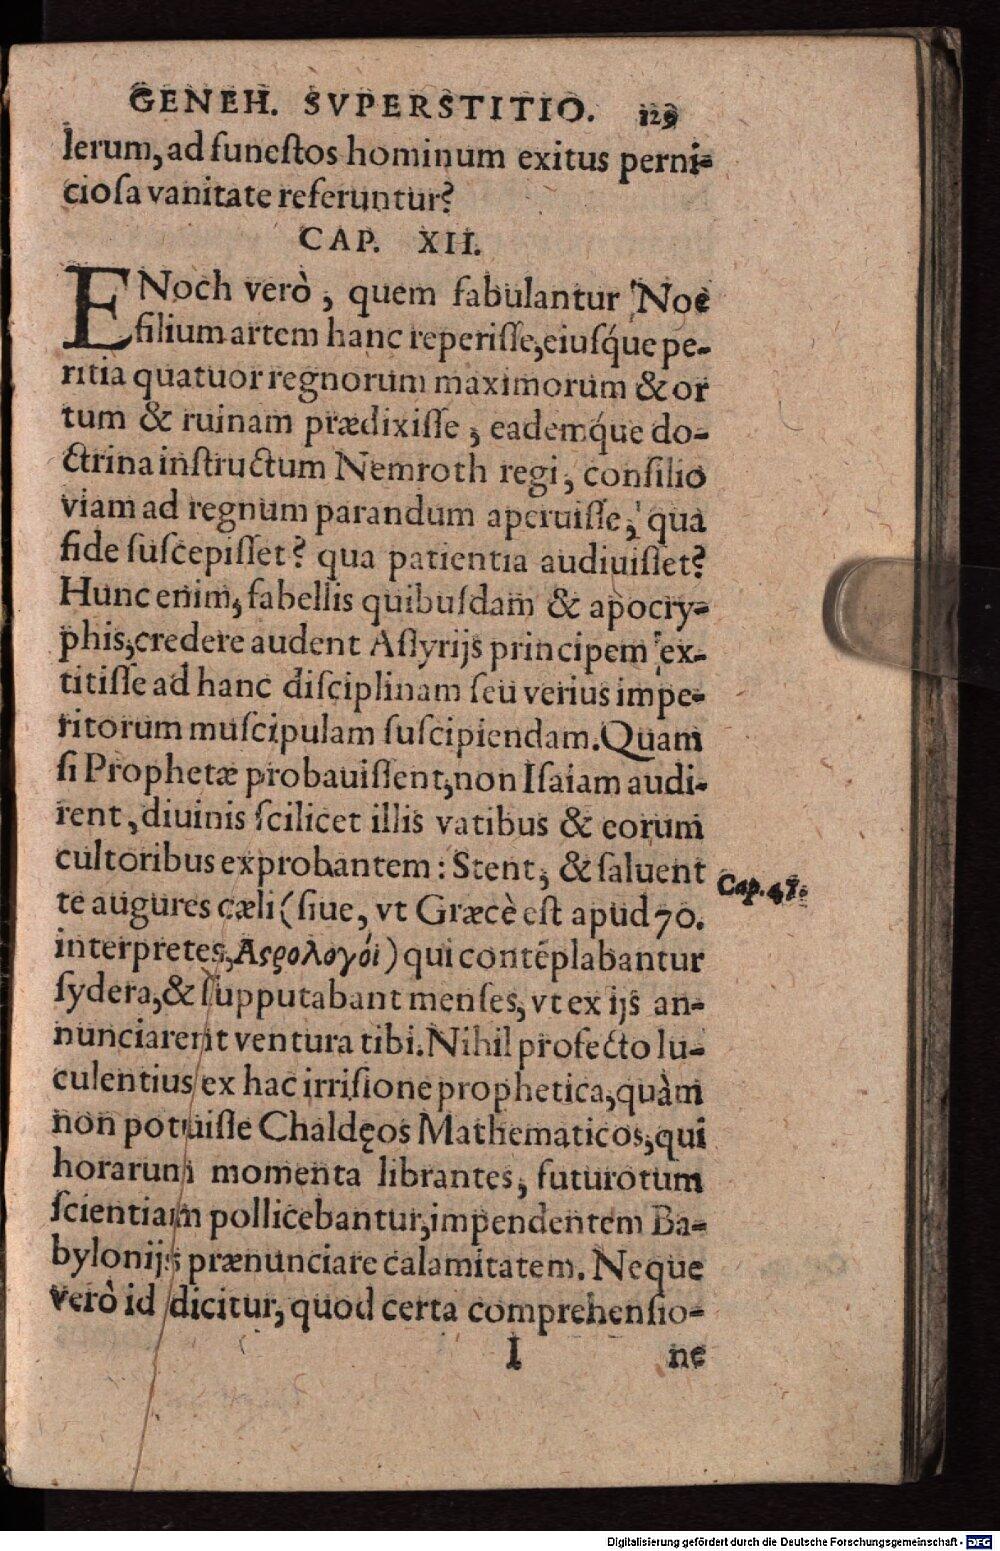 GENEH. SVPERSTITIO. 129
lerum, ad funeſtos hominum exitus perni-
cioſa vanitate referuntur?
CAP. XII.
ENoch verò, quem fabulantur Noë
filium artem hanc reperiſſe, eiuſq́ue pe-
ritia quatuor regnorum maximorum & or
tum & ruinam prædixiſſe, eademq́ue do-
ctrina inſtructum Nemroth regi, conſilio
viam ad regnum parandum aperuiſſe, qua
fide ſuſcepiſſet? qua patientia audiuiſſet?
Hunc enim, fabellis quibuſdam & apocry-
phis, credere audent Aſſyrijs principem ex-
titiſſe ad hanc diſciplinam ſeu verius impe-
ritorum muſcipulam ſuſcipiendam. Quam
ſi Prophetæ probauiſſent, non Iſaiam audi-
rent, diuinis ſcilicet illis vatibus & eorum
cultoribus exprobantem: Stent, & ſaluent
Cap. 47.
te augures cæli (ſiue, vt Græcè eſt apud 70.
interpretes, Αςρολογόι) qui contẽplabantur
ſydera, & ſupputabant menſes, vt ex ijs an-
nunciarent ventura tibi. Nihil profecto lu-
culentius ex hac irriſione prophetica, quàm
non potuiſſe Chaldęos Mathematicos, qui
horarum momenta librantes, futurotum
ſcientiam pollicebantur, impendentem Ba-
bylonijs prænunciare calamitatem. Neque
verò id dicitur, quod certa comprehenſio-
I ne
Digitalisierung gefördert durch die Deutsche Forschungsgemeinschaft - DFG